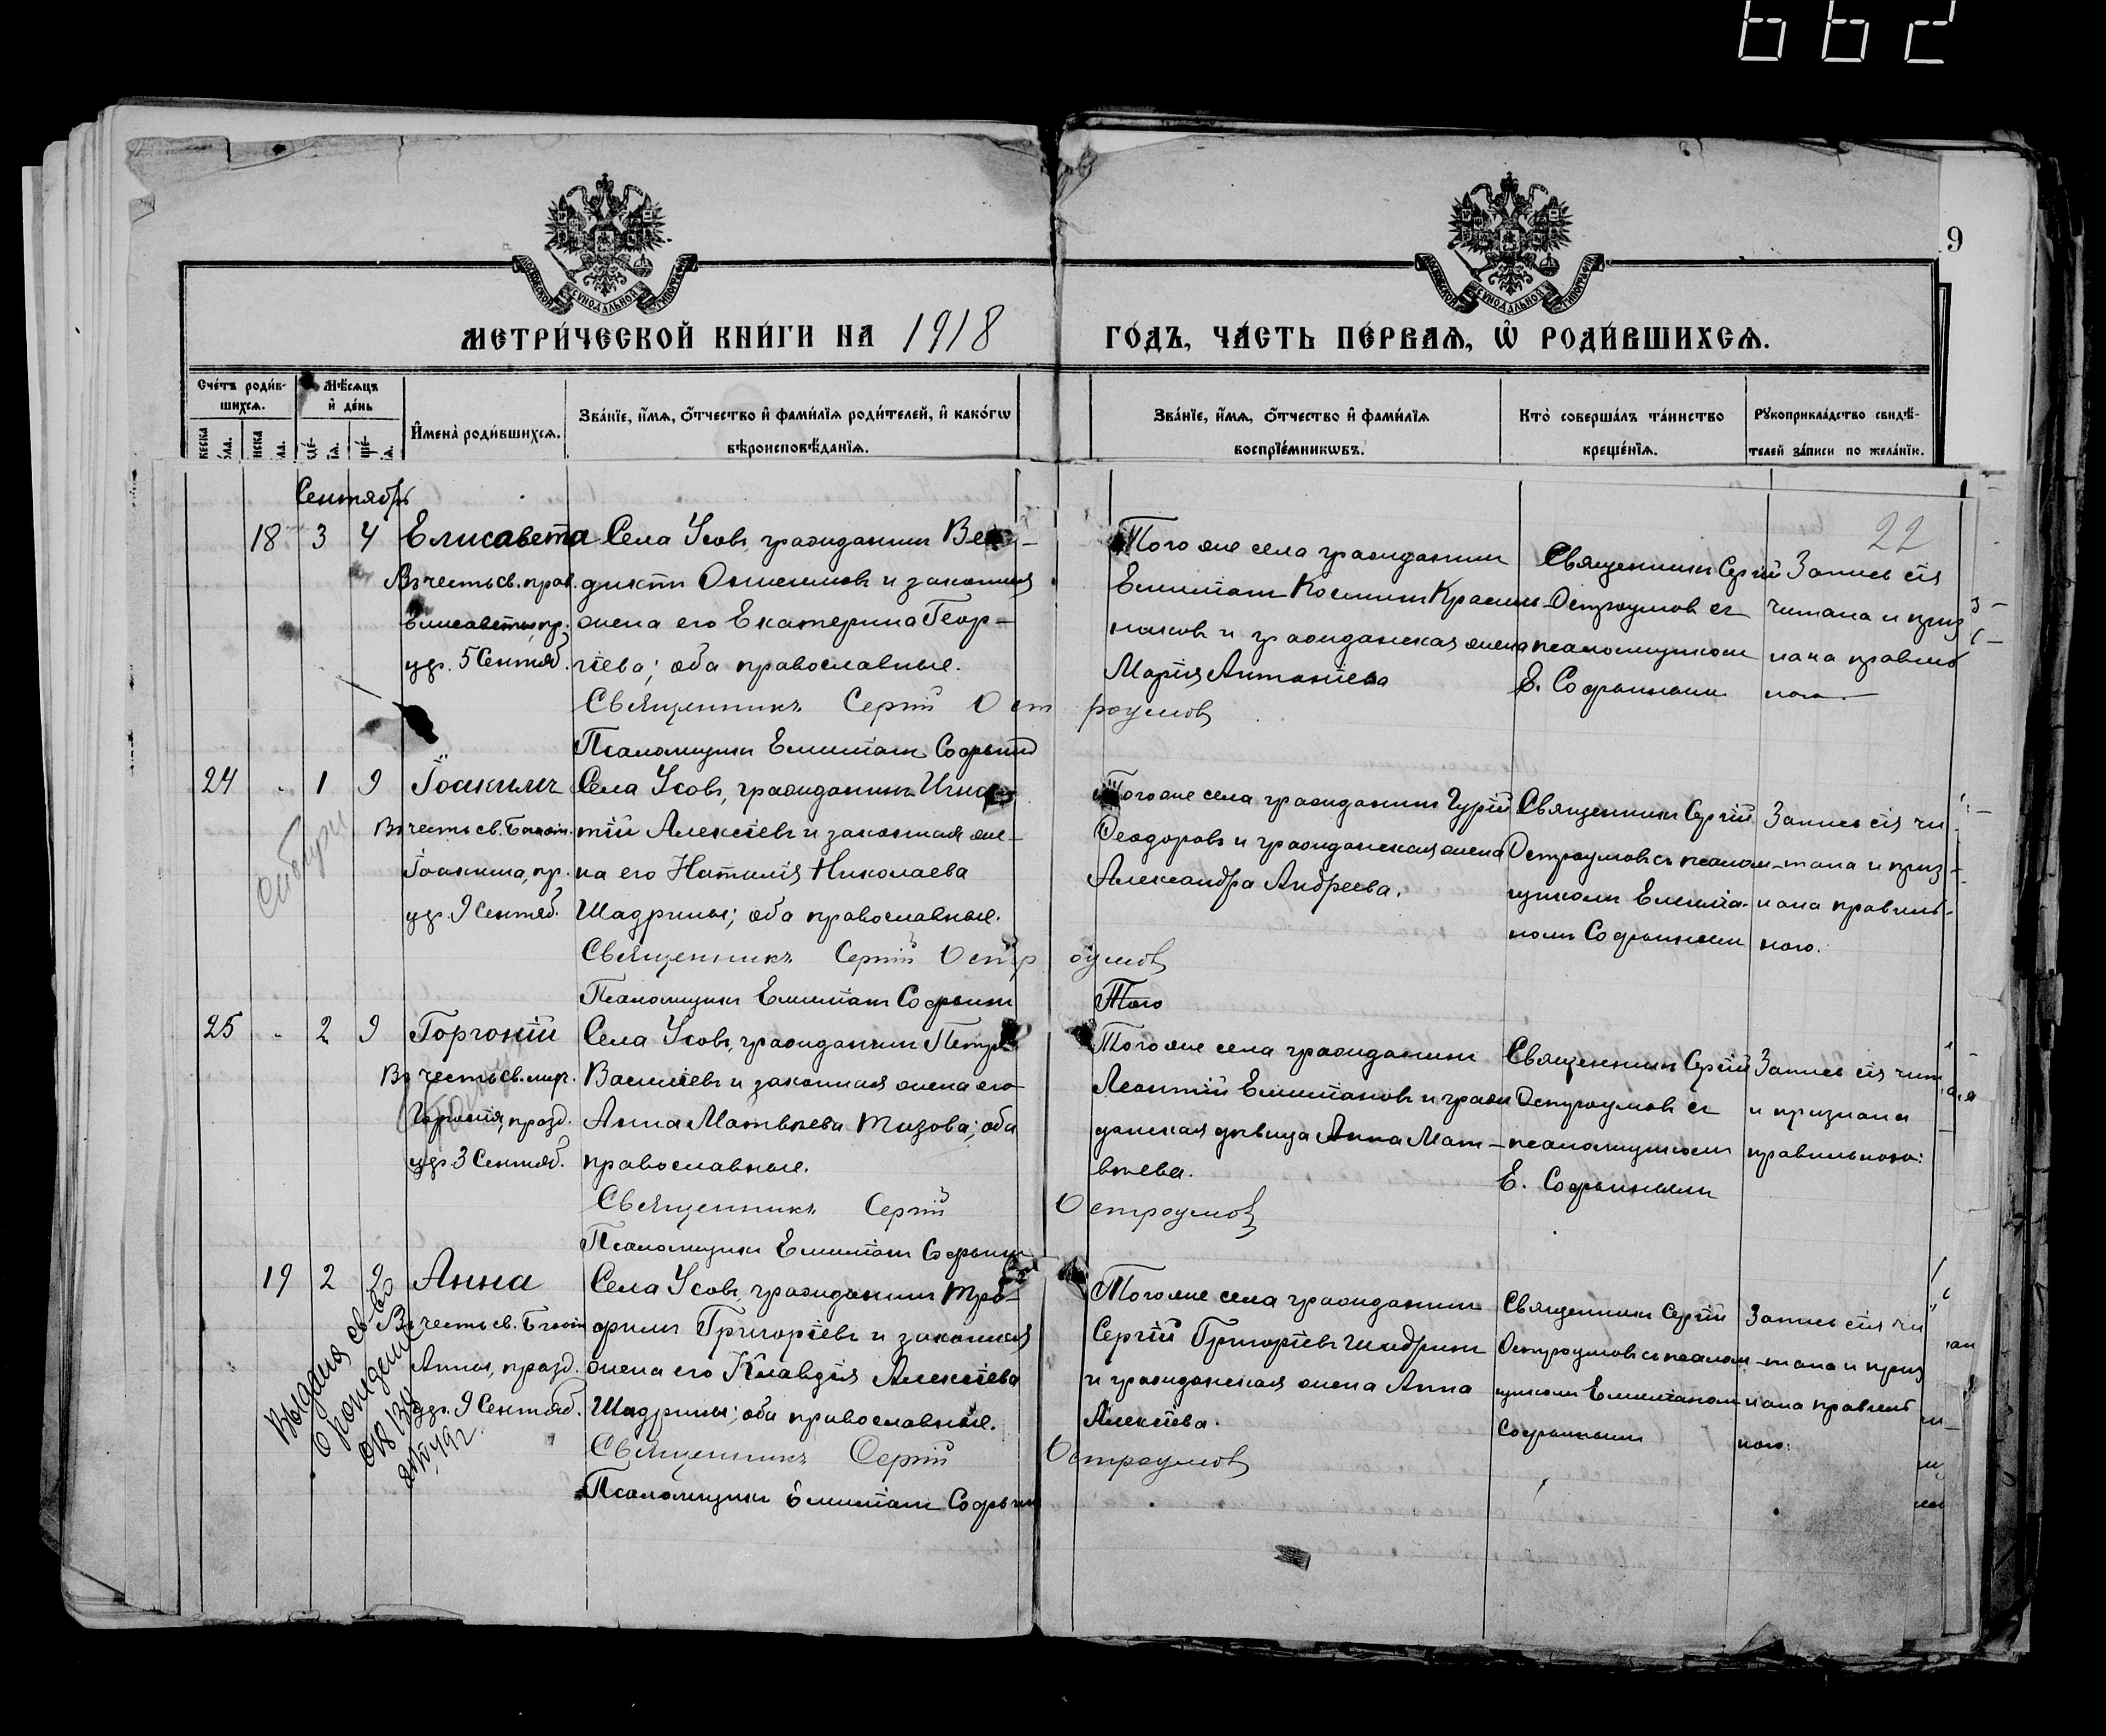 662
9
МОСКОВСКОЙ СѴНОДАЛЬНОЙ ТИПОГРАФІИ
МОСКОВСКОЙ СѴНОДАЛЬНОЙ ТИПОГРАФІИ
МЕТРИ́ЧЕСКОЙ КНИ́ГИ НА 1918
ГО́ДЪ, ЧА́СТЬ ПЕ́РВАѦ, Ѽ РОДИ́ВШИХСѦ.
Сче́тъ роди́в-
шихсѧ.
Мѣ́сѧцъ
и҆ де́нь
И҆мена̀ роди́вшихсѧ.
Зва́нїе, и҆́мѧ, ѻ҆́тчество и҆ фами́лїѧ роди́телей, и҆ како́гѡ
вѣроисповѣ́данїѧ.
Зва́нїе, и҆́мѧ, ѻ҆́тчество и҆ фами́лїѧ
воспрїе́мникѡвъ.
Кто̀ соверша́лъ та́инство
креще́нїѧ.
Рꙋкоприкла́дство свидѣ́-
телей за́писи по жела́нїю.
Сентябрь
22
18 3 4 Елисавета
Въ честь св. прав.
Елисаветы, пр.
уд. 5 Сентяб.
Села Усовъ, гражданинъ Ве
диктъ Онисимовъ и законная
жена его Екатерина Геор-
гіева; оба православные.
Священникъ Сергій Остроумовъ
Псаломщикъ Емиліанъ Софьинъ
Того же села гражданинъ
Емиліанъ Косминъ Красиль-
никовъ и гражданская жена
Марія Антоніева
Священникъ Сергій
Остроумовъ съ
псаломщикомъ
Е. Софьинымъ
Запись сія
читана и приз
нана правиль
ною.
24 " 1 9 Іоакимъ
Въ честь св. Богоот.
Іоакима, пр.
уд. 9 Сентяб.
Села Усовъ, гражданинъ Игна
тій Алексіевъ и законная же-
на его Наталія Николаева
Шадрины; оба православные.
Священникъ Сергій Остроумовъ
Псаломщикъ Емиліанъ Софьинъ
Того же села гражданинъ Гурій
Ѳеодоровъ и гражданская жена
Александра Андреева.
Священникъ Сергій
Остроумовъ съ псалом-
щикомъ Емилiа-
номъ Софьинымъ
Запись сія чи
тана и приз-
нана правиль-
ною.
Того
25 " 2 9 Горгоній
Въ честь св. муч.
Горгонія, празд.
уд. 3 Сентяб.
Села Усовъ, гражданинъ Петръ
Василіевъ и законная жена его
Анна Матвѣева Тизова; оба
православные.
Священникъ Сергій Остроумовъ
Псаломщикъ Емиліанъ Софьинъ
Того же села гражданинъ
Леонтій Емиліановъ и граж
данская дѣвица Анна Мат-
вѣева.
Священникъ Сергій
Остроумовъ съ
псаломщикомъ
Е. Софьинымъ
Запись сія читана
и признана
правильною:
19 2 9 Анна
Въ честь св. Богоот
Анны, празд.
уд. 9 Сентяб.
Выдана св-во
о рождении
Села Усовъ, гражданинъ Тро-
фимъ Григоріевъ и законная
жена его Клавдія Алексіева
Шадрины; оба православные.
Священникъ Сергій Остроумовъ
Псаломщикъ Емиліанъ Софьинъ
Того же села гражданинъ
Сергій Григоріевъ Шадринъ
и гражданская жена Анна
Алексіева.
Священникъ Сергій
Остроумовъ съ псалом-
щикомъ Емиліаномъ
Софьинымъ
Запись сія чи
тана и приз
нана правиль
ною: